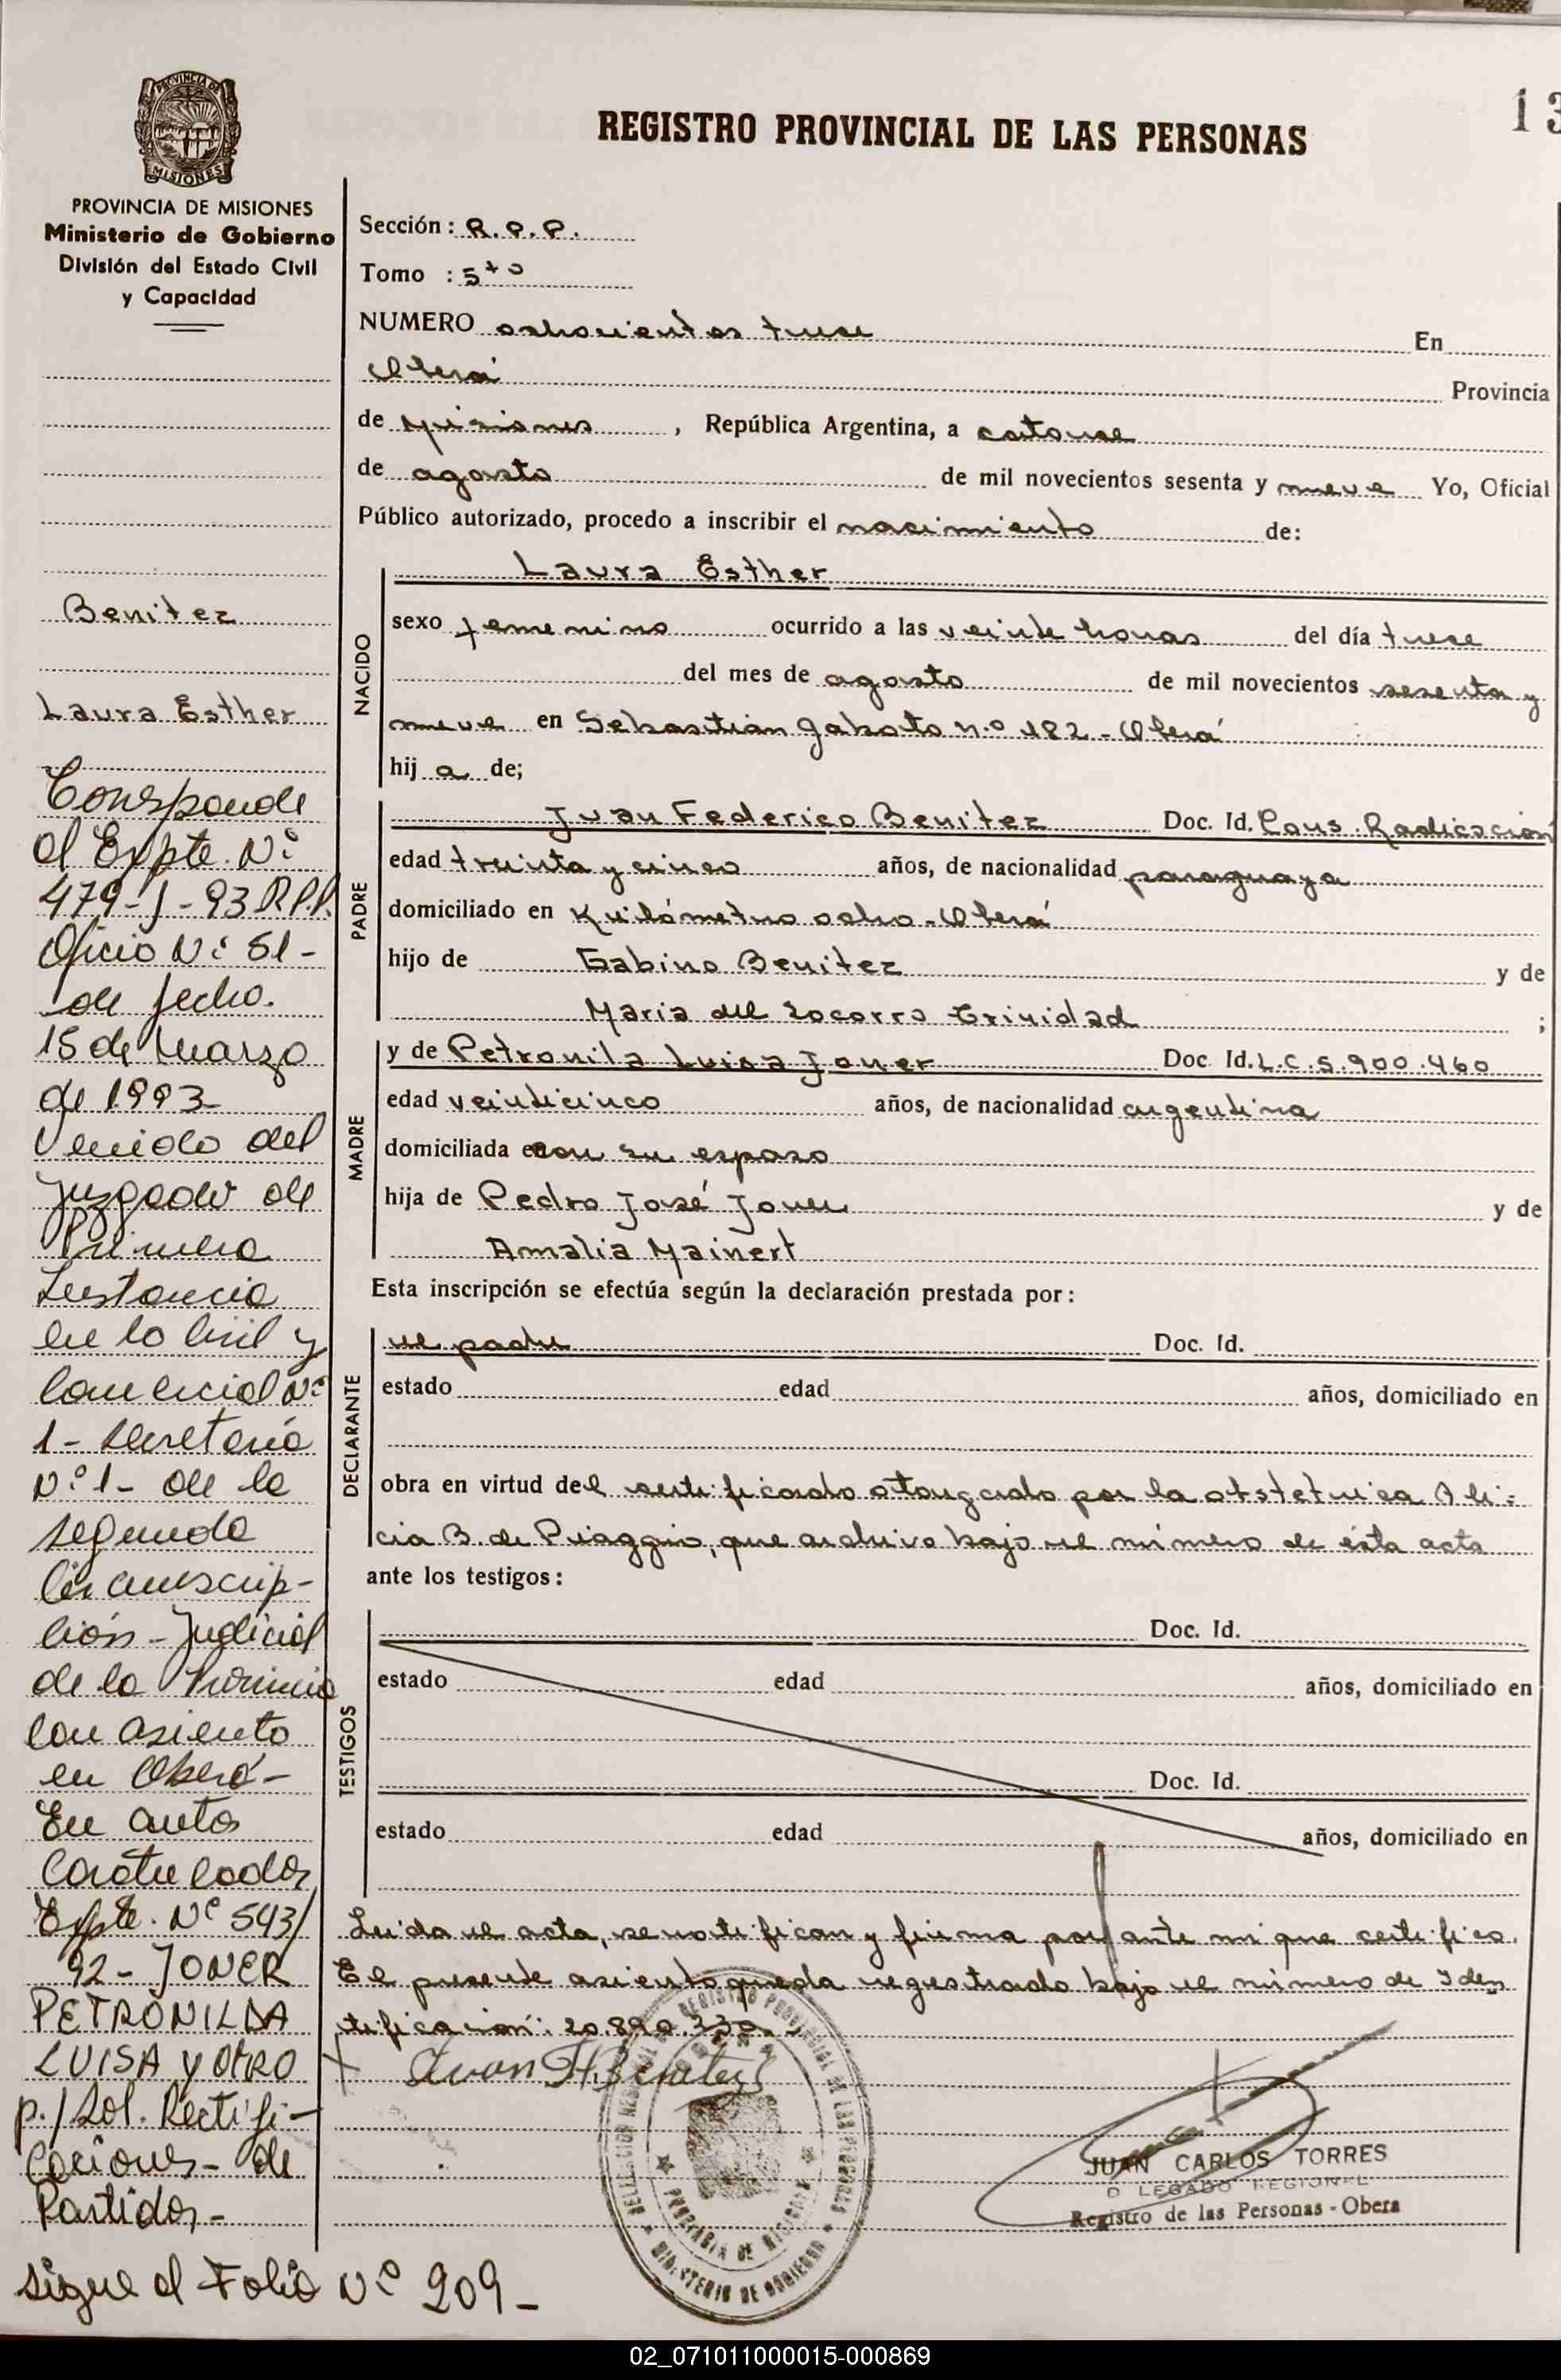 PROVINCIA DE MISIONES
Ministerio de Gobierno
División del Estado Civil
y Capacidad
REGISTRO PROVINCIAL DE LAS PERSONAS
13
Sección: R.P.P.
Tomo : 5to
NUMERO ochocientos trece En
Oberá Provincia
de Misiones, República Argentina, a catorce
de agosto de mil novecientos sesenta y nueve Yo, Oficial
Público autorizado, procedo a inscribir el nacimiento de:
NACIDO
Laura Esther
sexo femenino ocurrido a las veinte horas del día trece
del mes de agosto de mil novecientos sesenta y
nueve en Sebastián Gaboto n.o 182 - Oberá
hija de;
PADRE
Juan Federico Benitez Doc. Id. Cons. Radicación
edad treinta y cinco años, de nacionalidad paraguaya
domiciliado en Kilómetro ocho - Oberá
hijo de Gabino Benitez y de
Maria del Socorro Trinidad ;
MADRE
y de Petronila Luisa Joner Doc. Id. L.C.5.900.460
edad veinticinco años, de nacionalidad argentina
domiciliada con su esposo
hija de Pedro José Joner y de
Amalia Mainert
Esta inscripción se efectúa según la declaración prestada por:
DECLARANTE
el padre Doc. Id.
estado edad años, domiciliado en
obra en virtud del certificado otorgado por la obstetrica Ali-
cia B. de Piaggio, que archivo bajo el número de ésta acta
ante los testigos:
TESTIGOS
Doc. Id.
estado edad años, domiciliado en
Doc. Id.
estado edad años, domiciliado en
Leida el acta, se notifican y firma por ante mi que certifico.
El presente asiento queda registrado bajo el número de Iden
tificación: 20.890.330.
Juan F. Benitez
JUAN CARLOS TORRES
DELEGADO REGIONAL
Registro de las Personas - Obera
Benitez
Laura Esther
Corresponde
al Expte. Nº
479-J-93 R.P.P.
Oficio Nº 51-
de fecha.
15 de Marzo
de 1993
Venido del
Juzgado de
Primera
Instancia
en lo Civil y
Comercial Nº
1- Secretaria
Nº 1- de la
segunda
Circunscrip-
ción - Judicial
de la Provincia
con asiento
en Oberá-
En autos
Caratulados
Expte. Nº 543/
92- JONER
PETRONILDA
LUISA y OTRO
p./ Sol. Rectifi-
caciones- de
Partidas-
sigue al Folio Nº 209-
02_071011000015-000869